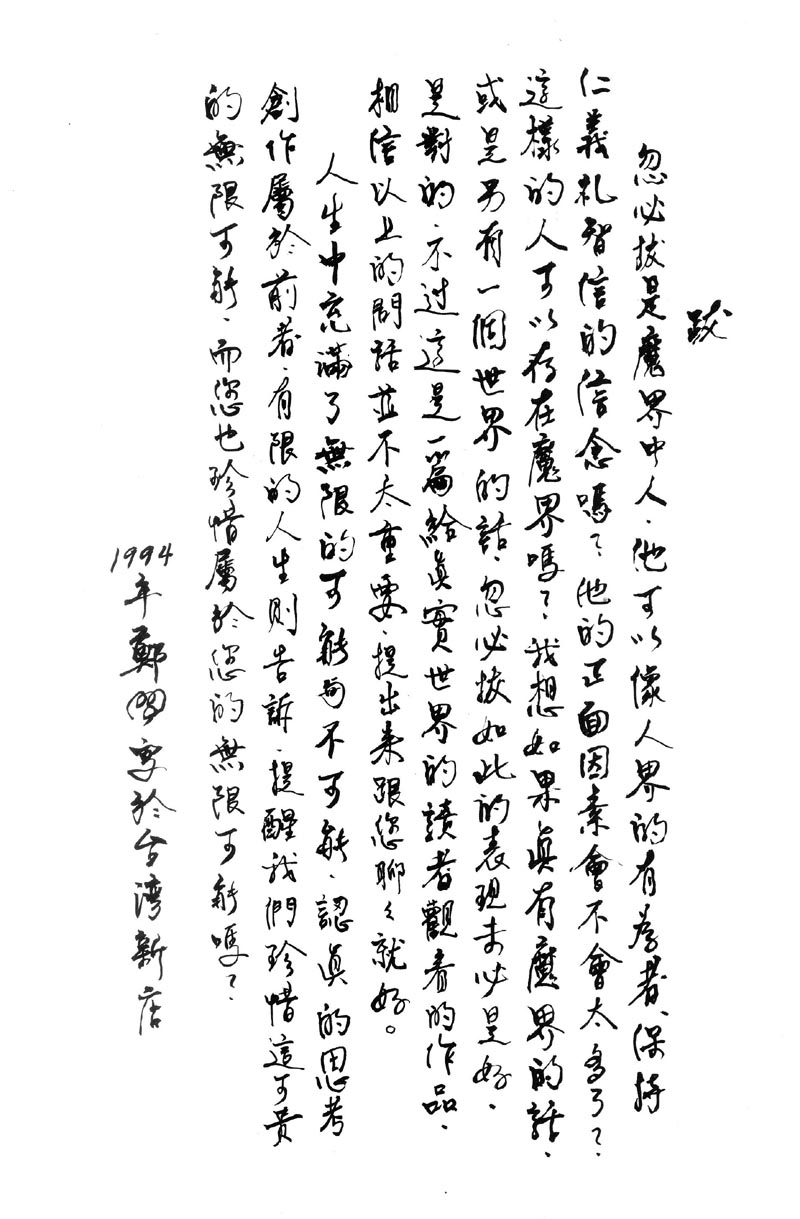 跋
忽必拔是魔界中人、他可以像人界的有為者、保持
仁義礼智信的信念嗎？他的正面因素會不會太多了？
這樣的人可以存在魔界嗎？我想如果真有魔界的話、
或是另有一個世界的話、忽必拔如此的表現未必是好、
是對的、不过這是一篇給真實世界的讀者觀看的作品、
相信以上的問話並不太重要、提出來跟您聊々就好。
人生中充滿了無限的可能與不可能、認真的思考
創作屬於前者、有限的人生則告訴、提醒我們珍惜這可貴
的無限可能、而您也珍惜屬於您的無限可能嗎？
1994年鄭問寫於台湾新店